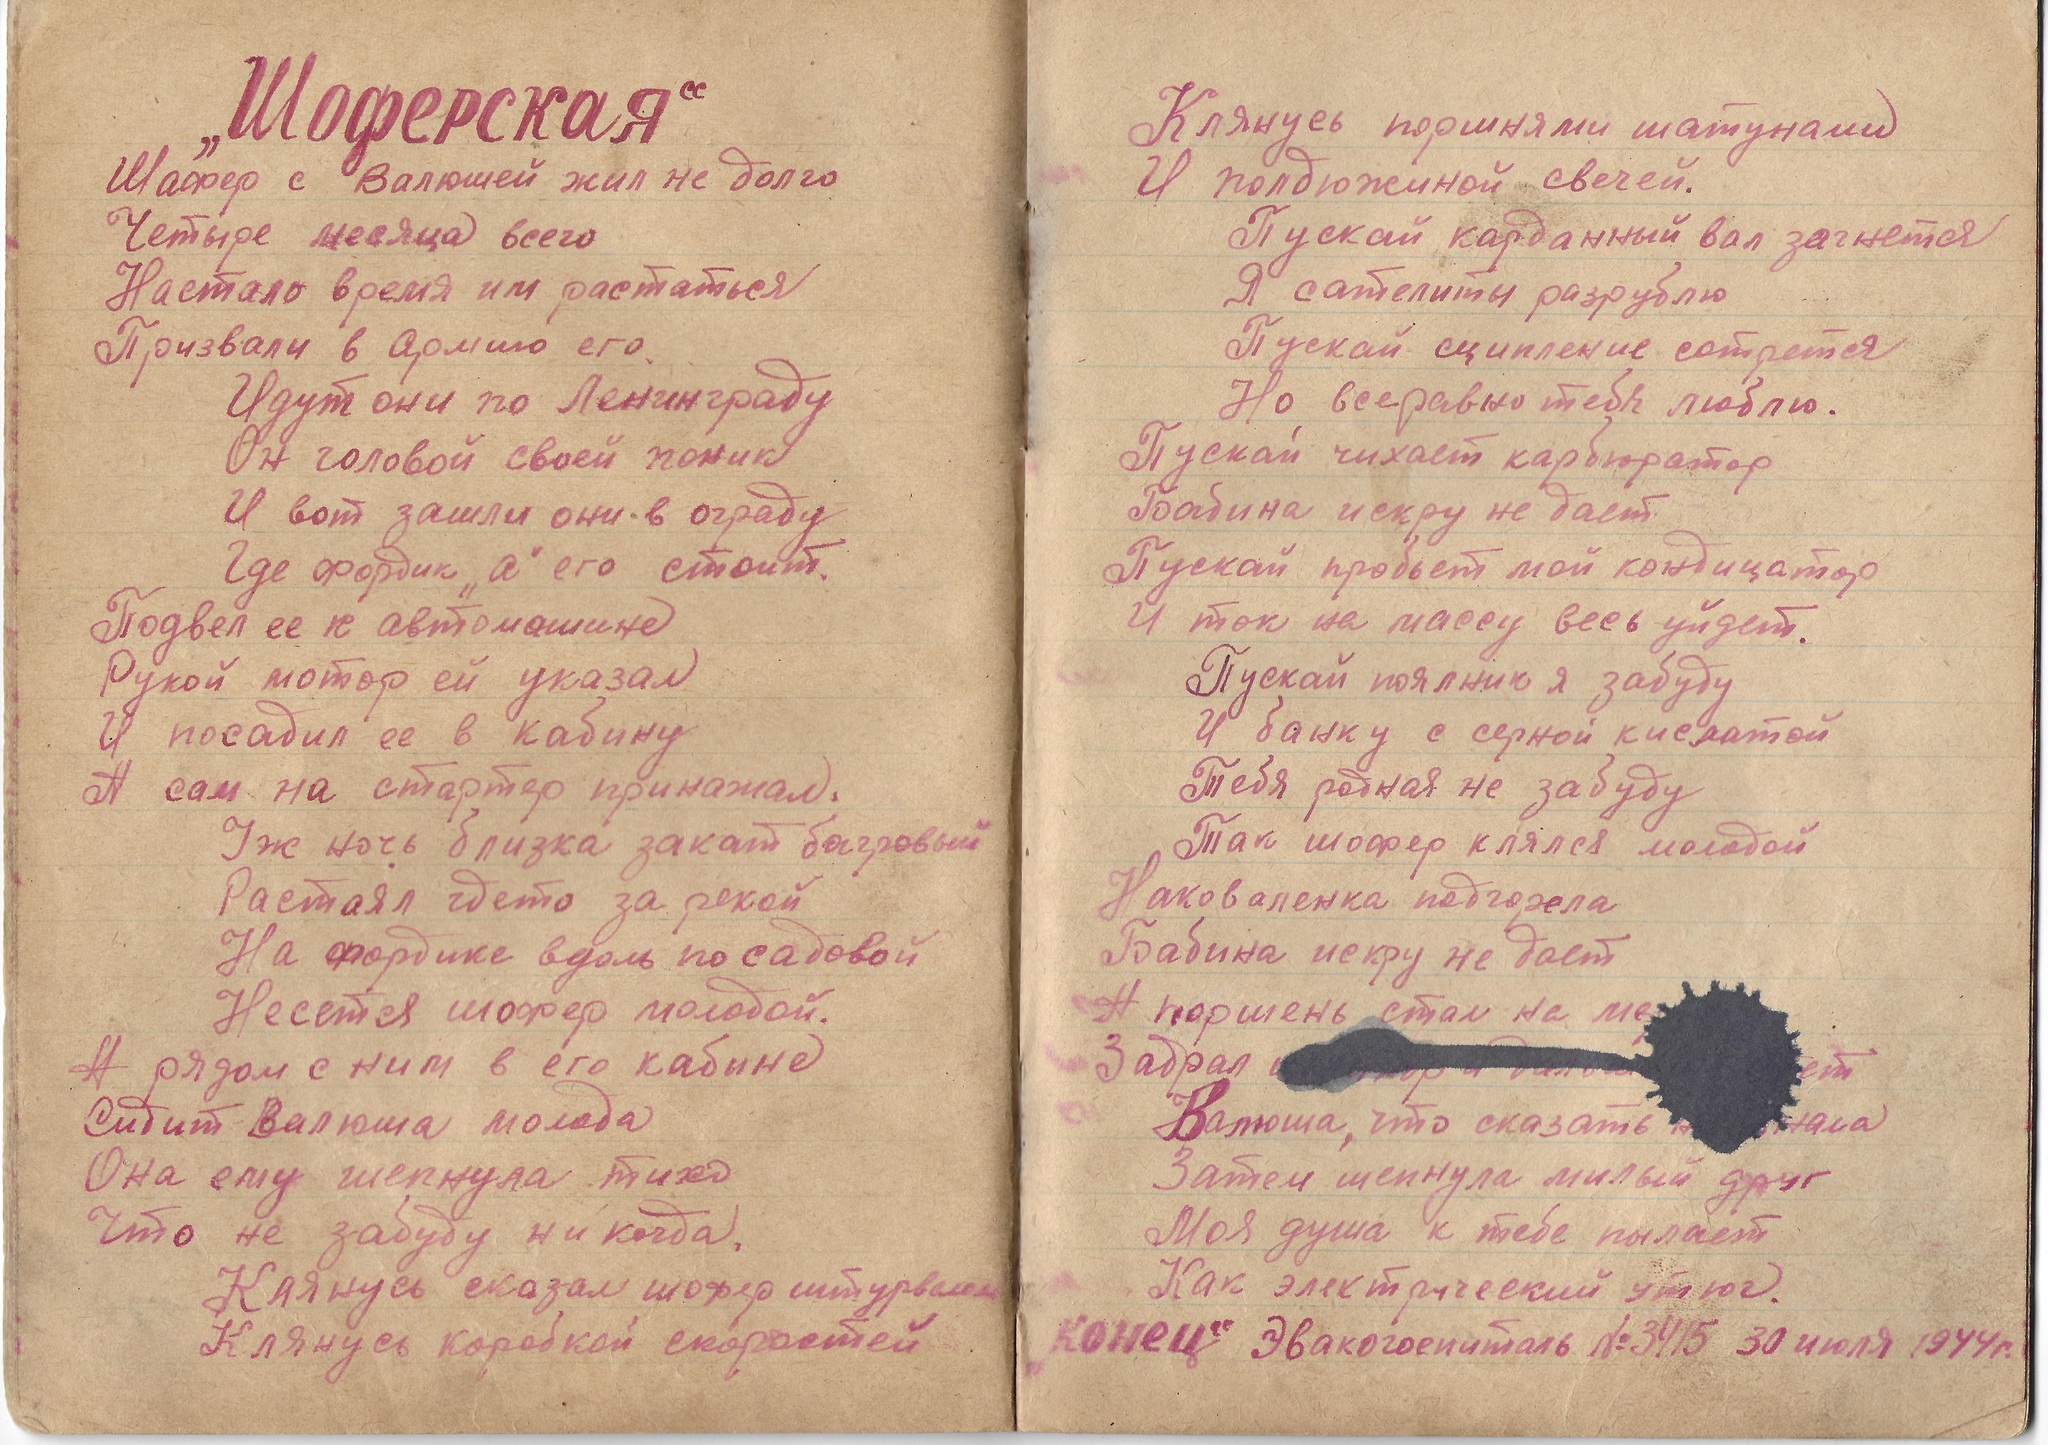 „Шоферская“
Шафер с Валюшей жил не долго
Четыре месяца всего
Настало время им растаться
Призвали в Армию его.
Идут они по Ленинграду
Он головой своей поник
И вот зашли они в ограду
Где фордик „А" его стоит.
Подвел ее к автомашине
Рукой мотор ей указал
И посадил ее в кабину
А сам на стартер принажал.
Уж ночь близка закат багровый
Растаял гдето за рекой
На фордике вдоль по садовой
Несется шофер молодой.
А рядом с ним в его кабине
Сидит Валюша молода
Она ему шепнула тихо
Что не забуду никогда.
Клянусь сказал шофер штурвалом
Клянусь коробкой скоростей
Клянусь поршнями шатунами
И полдюжиной свечей.
Пускай карданный вал загнется
Я сателиты разрублю
Пускай сципление сотрется
Но всеравно тебя люблю.
Пускай чихает карбюратор
Бабина искру не дает
Пускай пробьет мой кондицатор
И ток на массу весь уйдет.
Пускай поялник я забуду
И банку с серной кислатой
Тебя родная не забуду
Так шофер клялся молодой
Наковаленка подгорела
Бабина искру не дает
А поршень стал на
Задрал
Валюша, что сказать
Затем шепнула милый друг
Моя душа к тебе пылает
Как электрический утюг.
„конец“ Эвакогоспиталь №3415 30 июля 1944г.